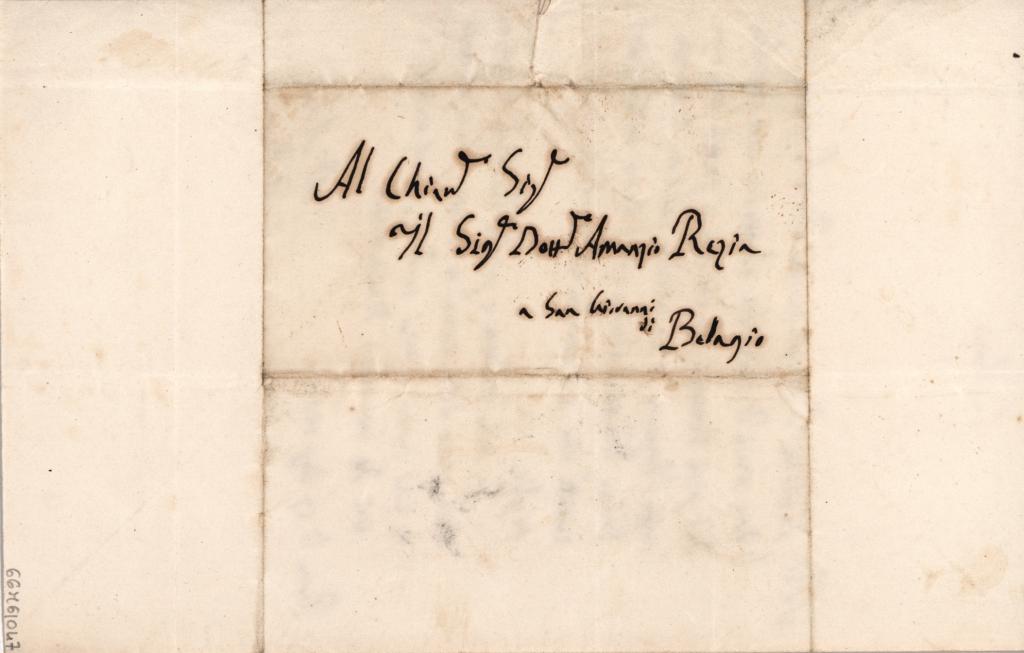 Al Chiarᵐᵒ Sigʳᵉ
Il Sigʳᵉ Dottʳᵉ Amanzio Rezia
a San Giovanni
di
Bellagio